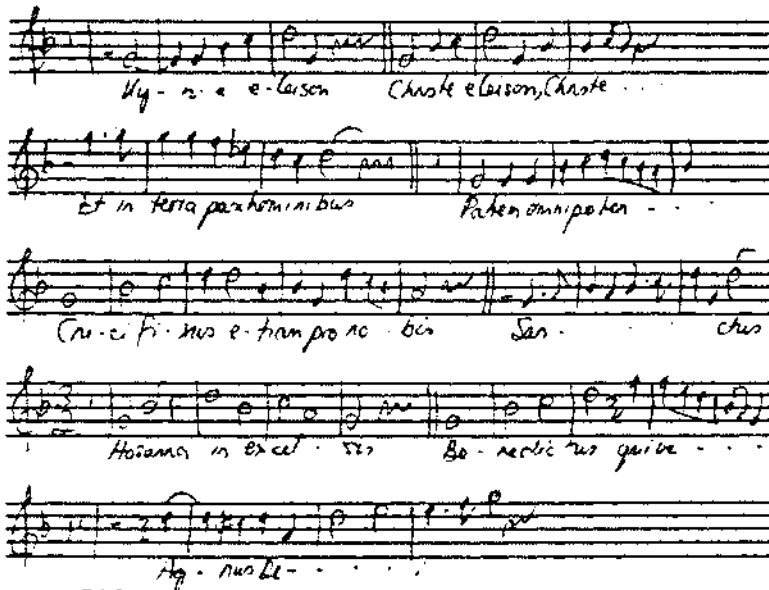 Ky - ri - e e - leison Christe eleison, Christe . . .
Et in terra pax hominibus Patrem omnipoten - . .
Cru - ci fi - xus e - tiam pro no - bis San - . . ctus
Hosanna in excel - sis Be - nedictus qui ve - . . .
Ag - nus De - . . . .